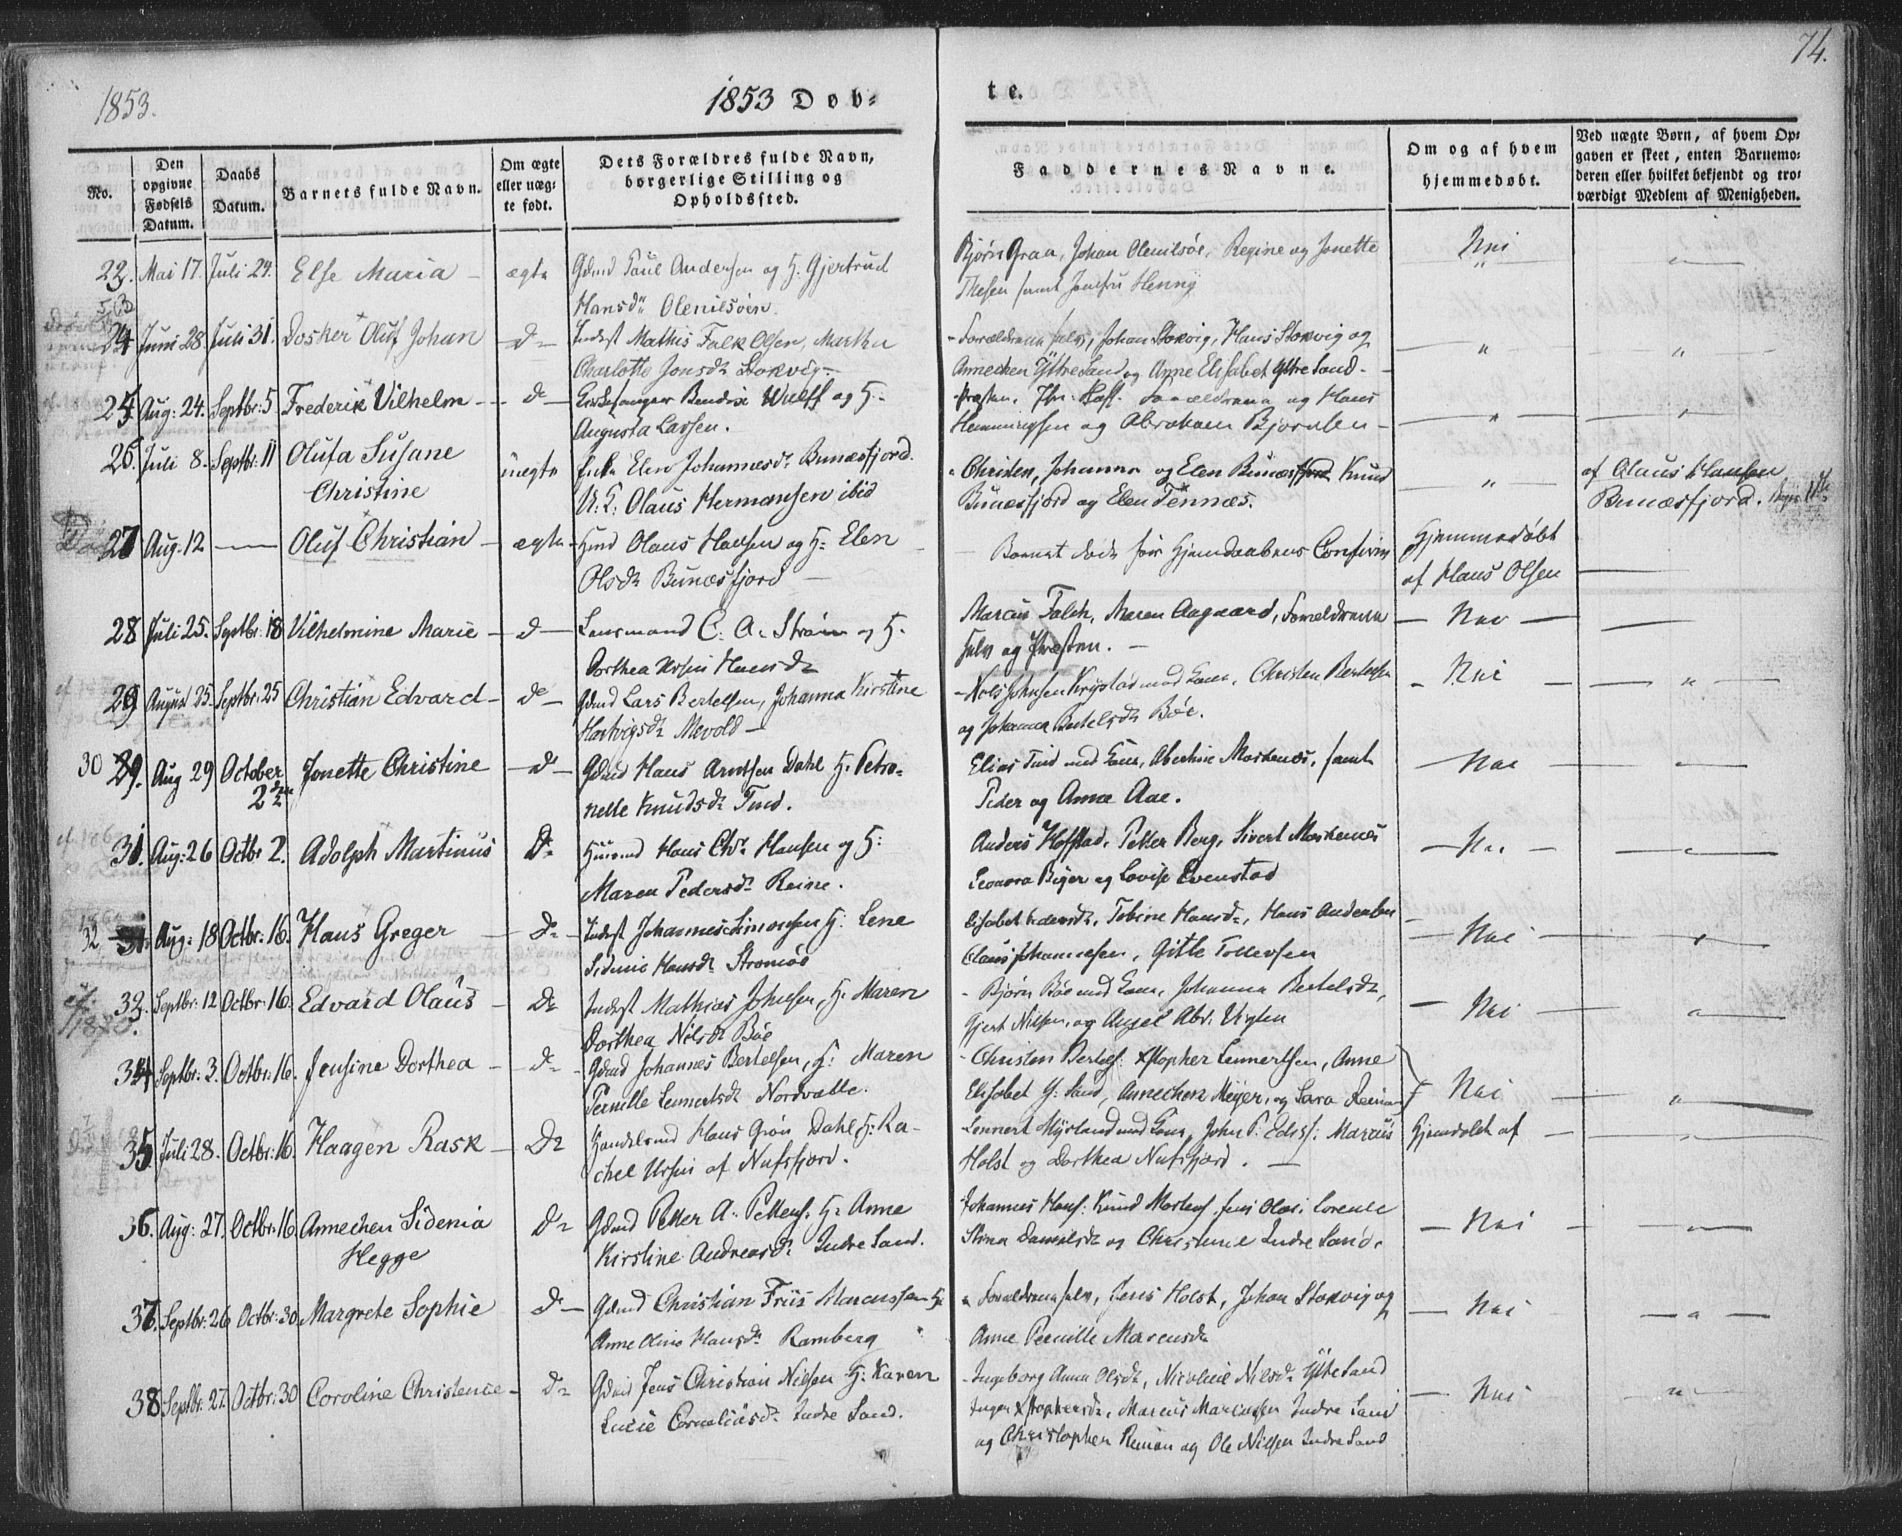 1853.
1853 Døb-
te.
74.
No.
Den opgivne Fødsels Datum.
Daabs Datum.
Barnets fulde Navn.
Om ægte eller uægte født.
Dets Forældres fulde Navn, borgerlige Stilling og Opholdssted.
Faddernes Navne.
Om og af hvem hjemmedøbt.
Ved uægte Børn, af hvem Opgaven er skeet, enten Barnemoderen eller hvilket bekjendt og troværdigt Medlem af Menigheden.
23. Mai 17. Juli 24. Else Maria – ægte Gdmd Paul Andersen og H. Gjertrud
Hansdr Olenilsøen.
Bjørn Graa, Johan Olenilsøe, Regine og Jonette
Thesen samt Jomfru Henny
Nei
24 Juni 28. Juli 31. Oluf Johan D– Inderst Mathis Falk Olsen, Martha
Charlotte Jonsdr Stokvig –
Forældrene selv, Johan Stokvig, Hans Stokvig og
Annechen Yttre Sand og Anne Elisabet Yttre Sand –
25 Aug: 24. Septbr: 5 Frederik Vilhelm – d– Kirkesanger Bendix Wulff og H.
Augusta Lassen.
Præsten, Forældrene og Hans
Hemmingsen og Abraham Bjørnsen –
26. Juli 8. Septbr: 11 Olufa Susane
Christine
uægte Enke Elen Johannesdr Bunæsfjord.
U. F. Olaus Hermansen ibid
Christen, Johanna og Elen Bunæsfjord Knud
Bunæsfjord og Elen Tennæs.
af Olaus Hansen
Bunæsfjord.
27 Aug. 12 — Oluf Christian – ægte Hmd Olaus Hansen og H: Elen
Olsdr Bunæsfjord –
Barnet døde før Hjemdaabens Confirm
Hjemmedøbt
af Hans Olsen
28 Juli 25. Septbr: 18 Vilhelmine Marie – d– Lensmand C. A. Strøm og H.
Dorthea Ursin Hansdr
Marcus Falch, Maren Aagaard, Forældrene
selv og Præsten. –
– Nei –
29 August 25. Septbr: 25 Christian Edvard – d– Gdmd Lars Bertelsen, Johanna Kirstine
Hartvigsdr Mevold –
Nels Johnsen Krystad med Kone, Christen Bertelsen
og Johanna Bertelsdr Bøe.
– Nei
30 29. Aug 29 October
2den
Jonette Christine – d– Gdmd Hans Arntsen Dahl H. Petro-
nelle Knudsdr Tind.
Elias Tind med Kone, Abertine Moskenæs, samt
Peder og Anna Aae.
– Nei –
31. Aug: 26 Octbr 2. Adolph Martinus D– Huusmd Hans Chr. Hansen og H:
Maren Pedersdr Reine.
Anders Hofstad, Petter Berg, Sivert Moskenæs
Leonora Beyer og Lovise Evenstad
– Nei –
32 31. Aug: 18 Octbr: 16. Hans Greger – D– Inderst Johannes Simonsen H: Lene
Sidenie Hansdr Strømøe
Elisabet Pedersdr, Tobine Hansdr, Hans Andersen
Claus Johannesen, Gitte Tollevsen
– Nei –
33. Septbr: 12 Octbr: 16. Edvard Olaus – D– Inderst Mathias Johnsen, H: Maren
Dorthea Nilsdr Bøe
– Bjørn Bøe med Kone, Johanna Bertelsdr,
Gjert Nilsen, og Angel Abr. Vigten
– Nei –
34 Septbr: 3. Octbr: 16. Jensine Dorthea – D– Gdmd Johannes Bertelsen, H: Maren
Pernille Lennertsdr Nordvatle.
– Christen Bertels: Xstopher Lennertsen, Anne
Elisabet Y: Sand, Annechen Meyer, og Sara Reman
Nei –
35 Juli 28. Octbr: 16. Haagen Rask – D– Handelsmd Hans Grøn Dahl H: Ra-
chel Ursin af Nufsfjord.
Lennert Myrland med Kone, John P. Edis: Marcus
Holst og Dorthea Nufsfjord. –
Hjemdøbt af
36. Aug: 27. Octbr: 16. Annechen Sidenia
Hegge
D– Gdmd Petter A. Petters: H: Anne
Kirstine Andreasdr Indre Sand.
Johannes Hans: Knud Mortens: Jens Olai: Lorense
Stina Danielsdr og Christense Indre Sand.
– Nei –
37. Septbr: 26 Octbr: 30. Margrete Sophie D– Gdmd Christian Friis Marcussen H:
Anne Oline Hansdr Ramberg
Forældrene selv, Jens Holst, Johan Stokvig og
Anne Pernille Marcusdr
– Nei
38 Septbr: 27. Octbr: 30 Caroline Christense – D– Gdmd Jens Christian Nilsen H: Karen
Lucie Corneliusdr Indre Sand.
– Ingeborg Anna Olsdr, Nicoline Nilsdr Yttre Sand
Inger Xstophersdr, Marcus Marcussen Indre Sand
og Christopher Reman og Ole Nilsen Indre Sand
– Nei